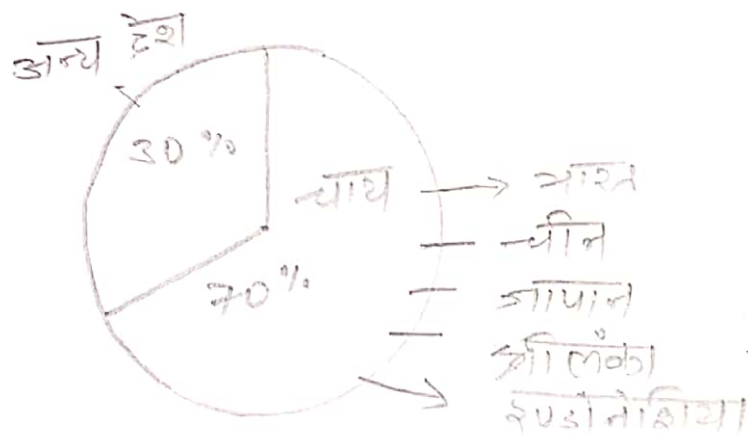 अन्य देश
30%
चाय
भारत
चीन
70%
जापान
श्रीलंका
इण्डोनेशिया